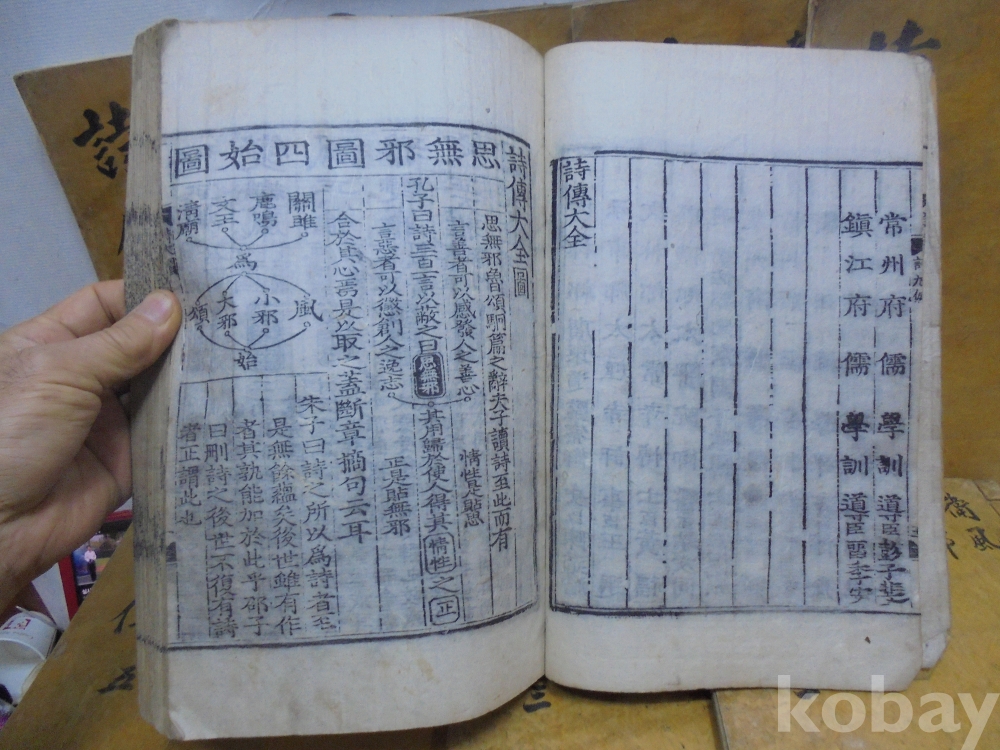 常州府儒學訓導臣彭子斐
鎮江府儒學訓導臣雷李安
詩傳大全
詩傳大全圖
思無邪圖
四始圖
思無邪魯頌駉篇之辭夫子讀詩至此而有
合於其心焉是以取之蓋斷章摘句云耳
孔子曰詩三百一言以蔽之曰思無邪
言善者可以感發人之善心
言惡者可以懲創人之逸志
其用歸於使人得其情性之正
情性是貼思
正是貼無邪
關雎
鹿鳴
文王
清廟
為
風
小邪
大邪
頌
始
朱子曰詩之所以為詩者至
是無餘蘊矣後世雖有作
者其孰能加於此乎邵子
曰刪詩之後世不復有詩
者正謂此也
kobay